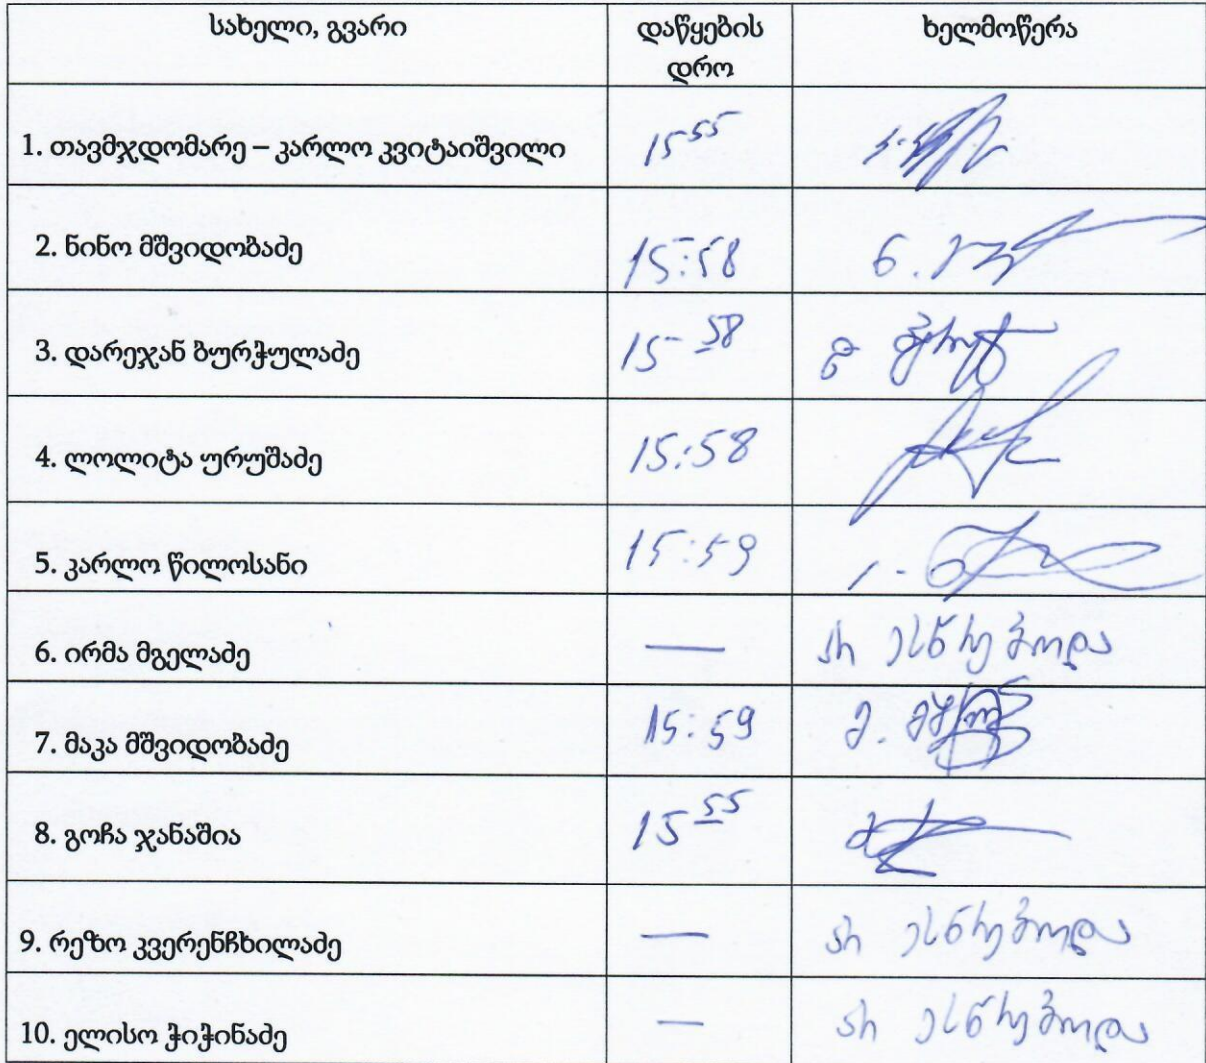 სახელი, გვარი
დაწყების
დრო
ხელმოწერა
1. თავმჯდომარე – კარლო კვიტაიშვილი 15 55
2. ნინო მშვიდობაძე 15:58 ნ.
3. დარეჯან ბურჭულაძე 15 58 დ
4. ლოლიტა ურუშაძე 15:58
5. კარლო წილოსანი 15:59
6. ირმა მგელაძე — არ ესწრებოდა
7. მაკა მშვიდობაძე 15:59 მ.
8. გოჩა ჯანაშია 15 55
9. რეზო კვერენჩხილაძე — არ ესწრებოდა
10. ელისო ჭიჭინაძე — არ ესწრებოდა